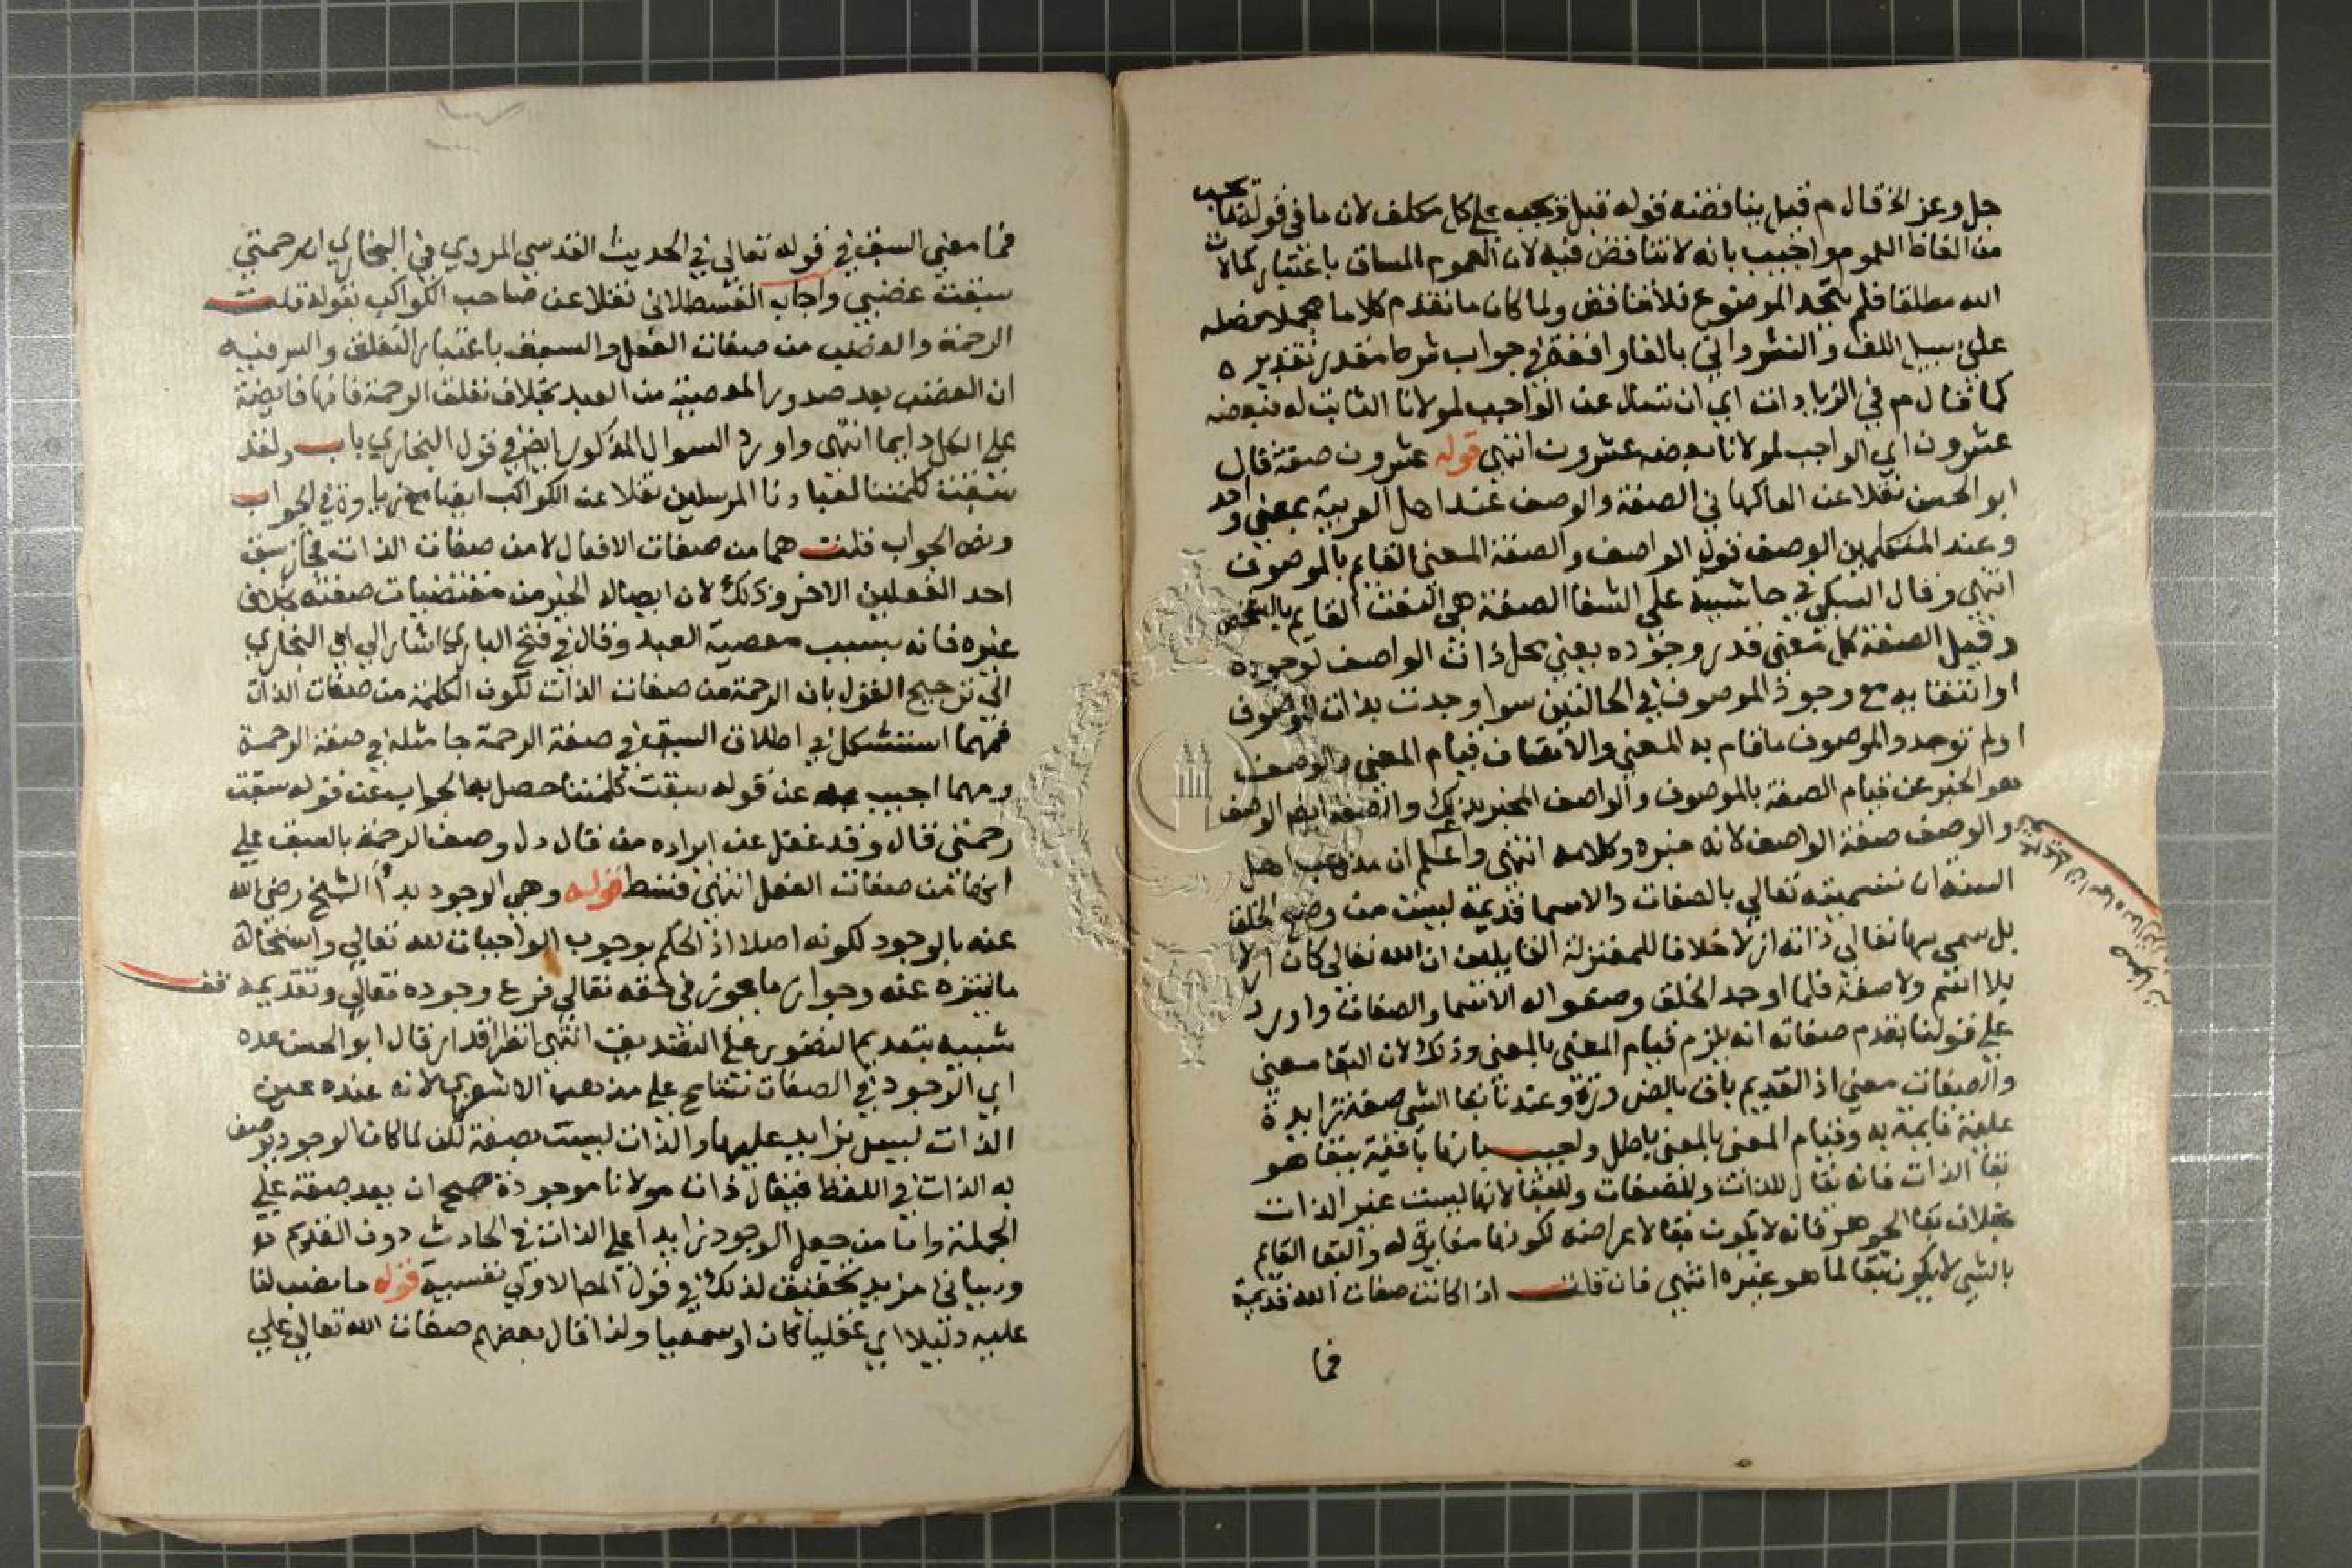 جل وعز الخ قال م قيل يناقضه قوله قبل ويجب على كل مكلف لان ما في قوله ما يجب
من الفاظ العموم واجيب بانه لا تناقض فيه لان العموم المساق باعتبار كمالات
الله مطلقا فلم يتحد الموضوع فلا تناقض ولما كان ما تقدم كلاما مجملا فصله
على سبيل اللف والنشر واتي بالفا واقعة في جواب شرط مقدر تقديره
كما قال م في الزيادات اي ان تسال عن الواجب لمولانا الثابت له فبعضه
عشرون اي الواجب لمولانا بعضه عشرون انتهى قوله عشرون صفة قال
ابو الحسن نقلا عن الفاكهاني الصفة والوصف عند اهل العربية بمعني واحد
وعند المتكلمين الوصف قول الواصف والصفة المعني القايم بالموصوف
انتهى وقال السبكي في حاشيته على الشفا الصفة هي النعت القايم بالشخص
وقيل الصفة كل معنى قدر وجوده يعني بمحل ذات الواصف لوجوده
او انتفا به مع وجود الموصوف في الحالتين سوا وجدت بذات الموصوف
او لم توجد والموصوف ما قام به المعني والاتصاف قيام المعني والوصف
هو الخبر عن قيام الصفة بالموصوف والواصف المخبر بذلك والصفة الوصف
والوصف صفة الواصف لانه خبره وكلامه انتهى واعلم ان مذهب اهل
السنة ان تسميته تعالي بالصفات والاسما قديمة ليست من وضع الخلق
بل سمى بها تعالي ذاته ازلا خلافا للمعتزلة القايلين ان الله تعالى كان ازلا
بلا اسم ولا صفة فلما اوجد الخلق وضعوا له الاسما والصفات واورد
على قولنا بقدم صفاته انه يلزم قيام المعنى بالمعنى وذلك لان البقا معني
والصفات معني اذ القديم باق بالضرورة وعندنا بقا الشي صفة زايدة
عليه قايمة به وقيام المعنى بالمعنى باطل واجيب بانها باقية ببقا هو
بقا الذات فانه بقا للذات وللصفات وللبقا لانها ليست غير الذات
بخلاف بقا الجوهر فانه لا يكون بقا لاعراضه لكونها مغايرة له والبقا القايم
بالشي لا يكون بقا لما هو غيره انتهى فان قلت اذا كانت صفات الله قديمة
فما
فما معني السبق في قوله تعالي في الحديث القدسي المروي في البخاري ان رحمتي
سبقت غضبي واجاب القسطلاني نقلا عن صاحب الكواكب بقوله قلت
الرحمة والغضب من صفات الفعل والسبق باعتبار التعلق والسر فيه
ان الغضب بعد صدور المعصية من العبد بخلاف تعلق الرحمة فانها فايضة
على الكل دايما انتهى واورد السوال المذكور ايضا في قول البخاري باب ولقد
سبقت كلمتنا لعبادنا المرسلين نقلا عن الكواكب ايضا مع زيادة في الجواب
ونص الجواب قلت هما من صفات الافعال لا من صفات الذات فجاز سبق
احد الفعلين الاخر وذلك لان ايصال الخير من مقتضيات صفته بخلاف
غيره فانه بسبب معصية العبد وقال في فتح الباري اشار الي اي البخاري
الي ترجيح القول بان الرحمة من صفات الذات لكون الكلمة من صفات الذات
فمهما استشكل في اطلاق السبق في صفة الرحمة جا مثله في صفة الرحمة
ومهما اجيب به عن قوله سبقت كلمتنا حصل به الجواب عن قوله سبقت
رحمتي قال وقد غفل عن ايراده من قال دل وصف الرحمة بالسبق علي
انها من صفات الفعل انتهى فسط قوله وهي الوجود بدأ الشيخ رضي الله
عنه بالوجود لكونه اصلا اذ الحكم بوجوب الواجبات لله تعالي واستحالة
ما تنزه عنه وجواز ما يجوز في حقه تعالي فرع وجوده تعالي وتقديمه قف
شبيه بتقديم التصور على التصديق انتهى انظر اقدار قال ابو الحسن عده
اي الوجود في الصفات تسامح علي مذهب الاشعري لانه عنده عين
الذات ليس بزايد عليها والذات ليست بصفة لكن لما كان الوجود توصف
به الذات في اللفظ فيقال ذات مولانا موجودة صح ان يعد صفة علي
الجملة واما من جعل الوجود زايدا علي الذات في الحادث دون القديم
وسياتي مزيد تحقيق لذلك في قول المص الاولي نفسية قوله ما نصب لنا
عليه دليلا اي عقليا كان او سمعيا ولذا قال بعضهم صفات الله تعالي علي